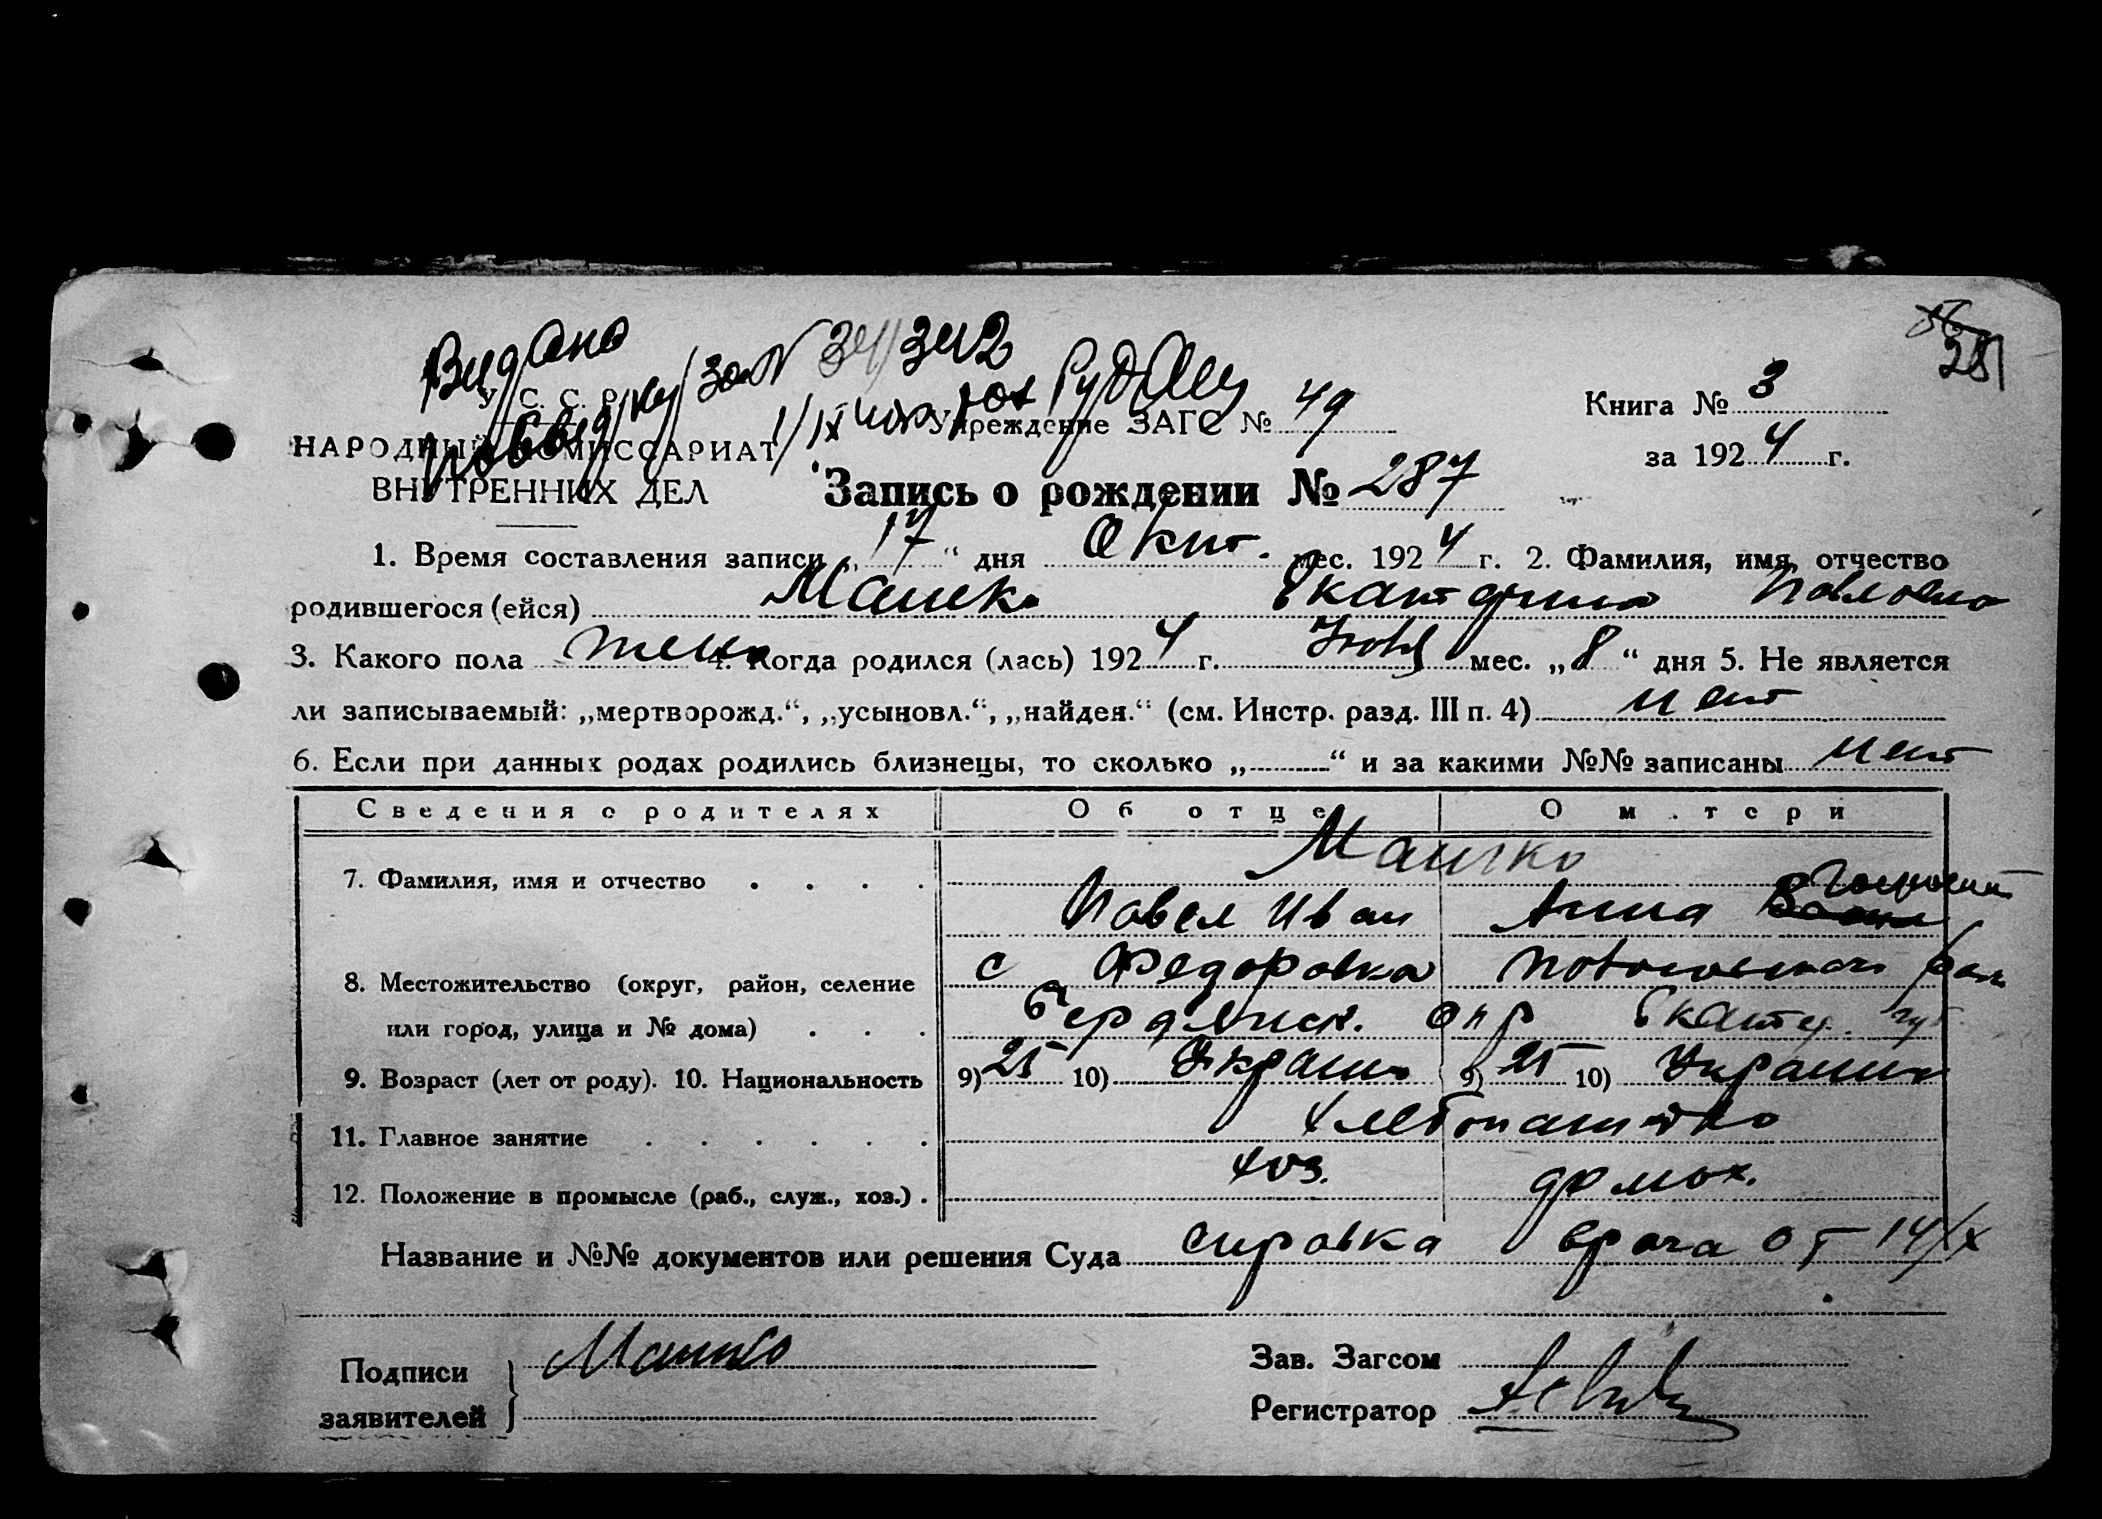 Видано
У. С. С. Р.
НАРОДНЫЙ КОМИССАРИАТ
ВНУТРЕННИХ ДЕЛ
Учреждение ЗАГС № 49
Книга № 3
за 1924 г.
Запись о рождении № 287
1. Время составления записи „17“ дня Окт. мес. 1924 г. 2. Фамилия, имя, отчество
родившегося (ейся) Машко Екатерина Павловна
3. Какого пола жен 4. Когда родился (лась) 1924 г. мес. „8“ дня 5. Не является
ли записываемый: „мертворожд.“, „усыновл.“, „найден.“ (см. Инстр. разд. III п. 4) нет
6. Если при данных родах родились близнецы, то сколько „ “ и за какими №№ записаны нет
Сведения о родителях Об отце О матери
7. Фамилия, имя и отчество Машко
Павел Иван Анна
8. Местожительство (округ, район, селение с Федоровка
или город, улица и № дома) Бердянск. окр Екатер. губ.
9. Возраст (лет от роду). 10. Национальность 9) 25 10) Украин 9) 25 10) Украин
11. Главное занятие хлебопашество
12. Положение в промысле (раб., служ., хоз.) хоз. домох.
Название и №№ документов или решения Суда справка врача от 14/X
Подписи заявителей Машко
Зав. Загсом
Регистратор